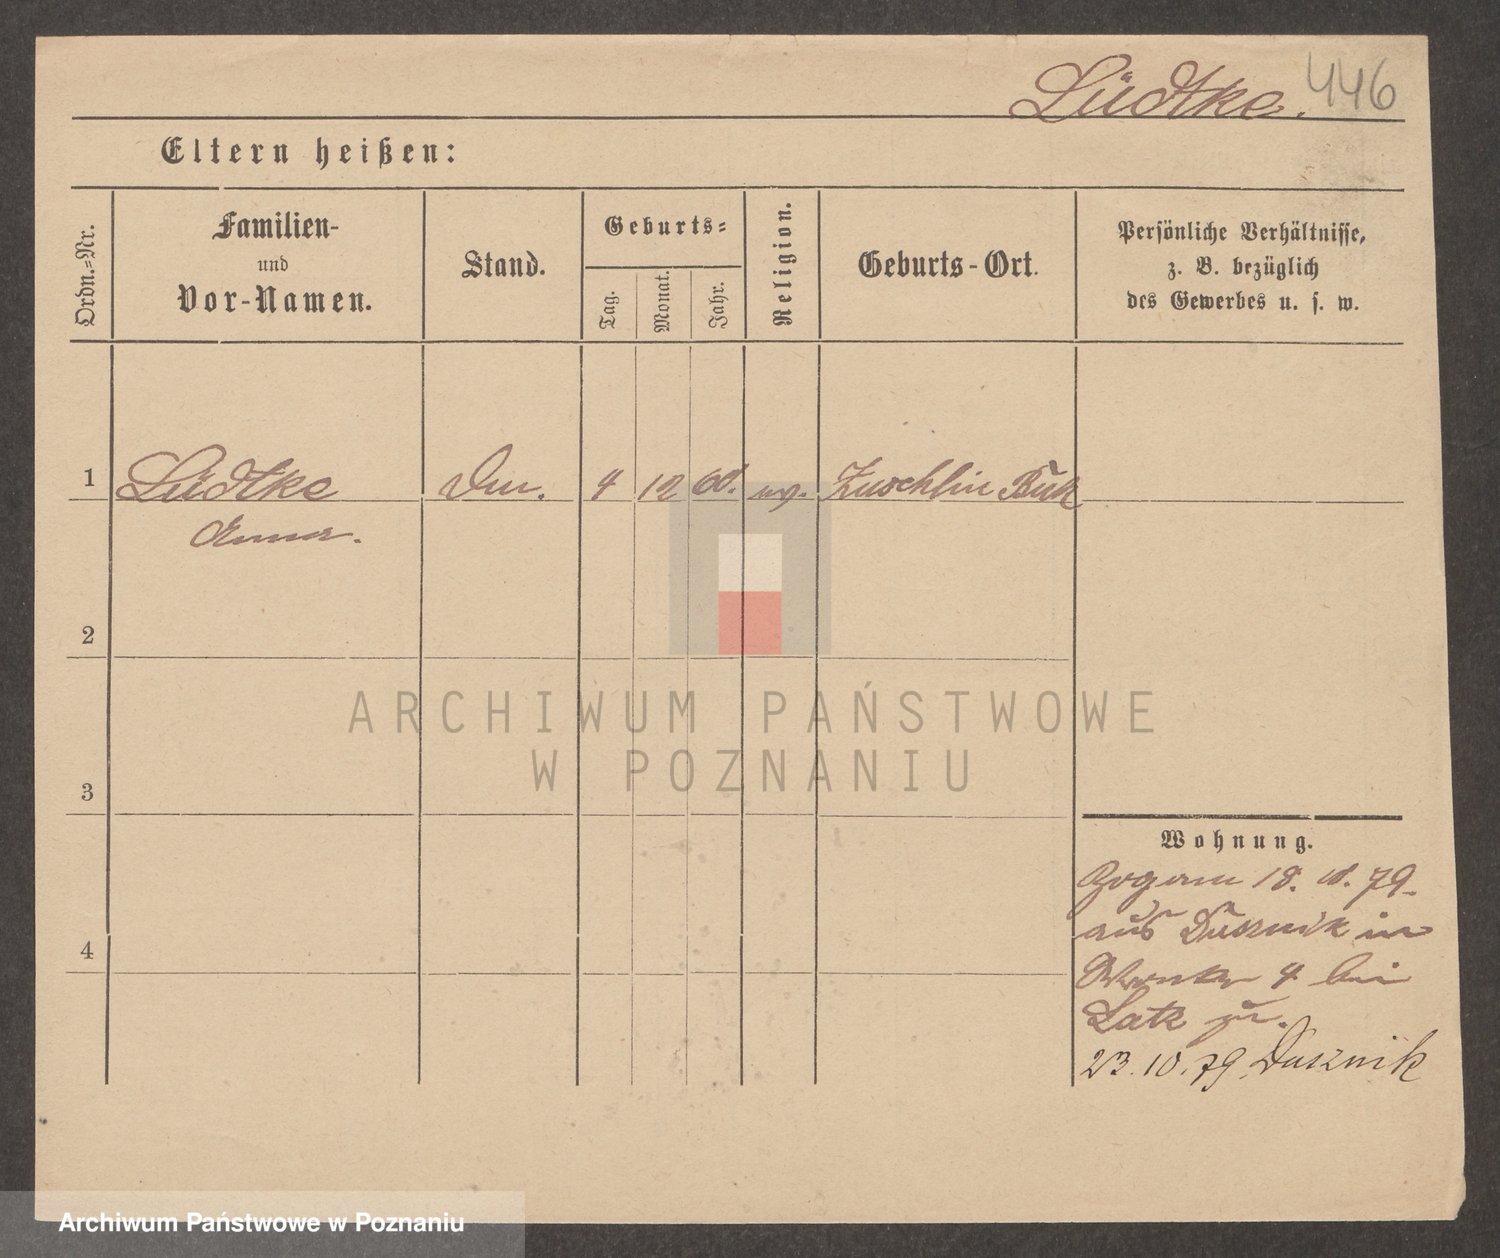 Lüdtke. 446
Eltern heißen:
Ordn.=Nr.
Familien-
und
Vor-Namen.
Stand.
Geburts=
Tag.
Monat.
Jahr.
Religion.
Geburts-Ort.
Persönliche Verhältnisse,
z. B. bezüglich
des Gewerbes u. s. w.
1 Lüdtke 4 12 Buk
2
3
4
Wohnung.
Zog am 18. 79.
aus Dusznik in
4 bei
Latz zu.
23.10.79. Dusznik
ARCHIWUM PAŃSTWOWE
W POZNANIU
Archiwum Państwowe w Poznaniu